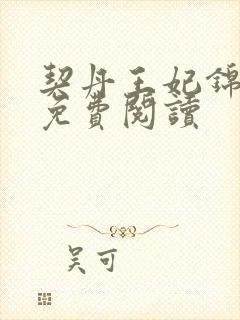 契丹王妃錦
免費閱讀
吴可